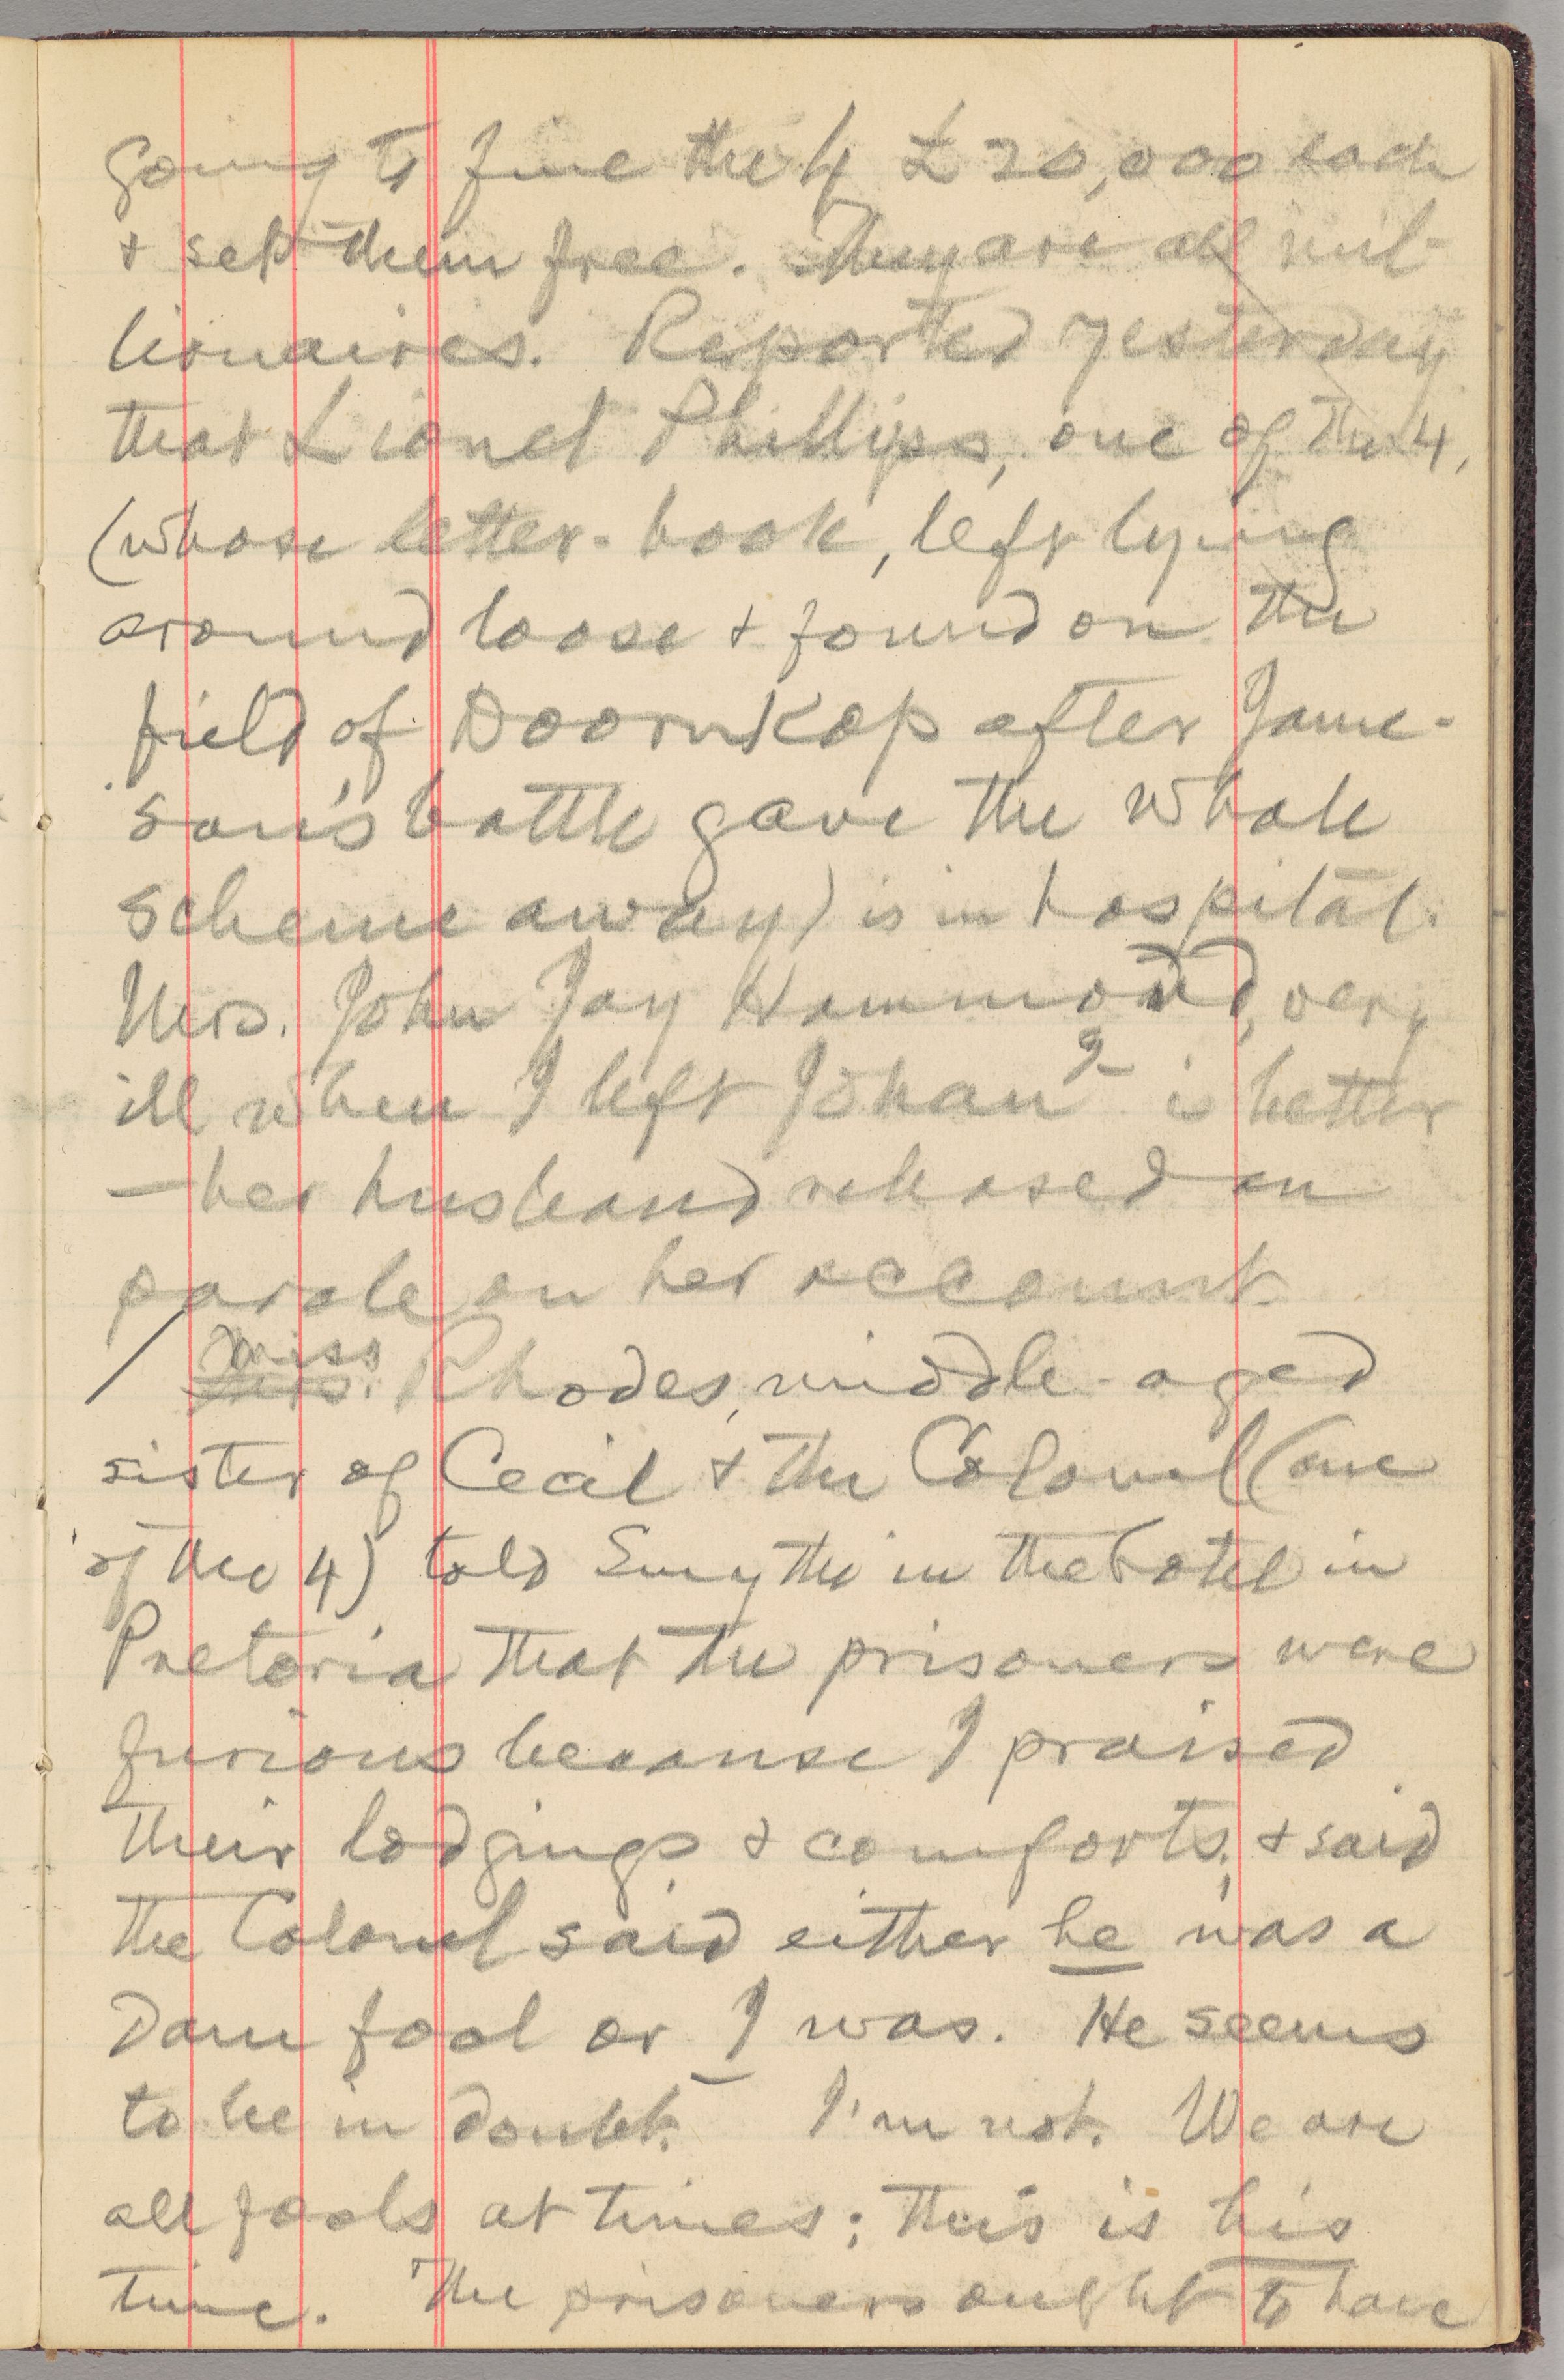 going to fine the 4 £20,000 each
+ set them free. They are all mil-
lionaires. Reported yesterday
that Lionel Phillips, one of the 4,
(whose letter-book, left lying
around loose + found on the
field of Doornkop after Jame-
son's battle gave the whole
scheme away) is in hospital.
Mrs. John Jay Hammond, very
ill when I left Johan^g is better
—her husband released on
parole on her account.
Miss
Mrs. Rhodes, middle-aged
sister of Cecil + the Colonel (one
of the 4) told Smythe in the hotel in
Pretoria that the prisoners were
furious because I praised
their lodgings + comforts; + said
the Colonel said either he was a
damn fool or I was. He seems
to be in doubt. I'm not. We are
all fools at times; this is his
time. The prisoners ought to have